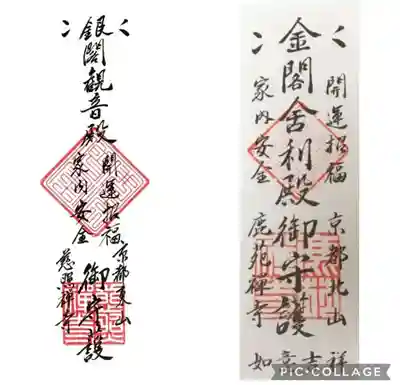 銀閣観音殿 御守護
開運招福 京都東山
家内安全 慈照禅寺
金閣舎利殿御守護
開運招福 京都北山 吉祥
家内安全 鹿苑禅寺 如意
PIC·COLLAGE